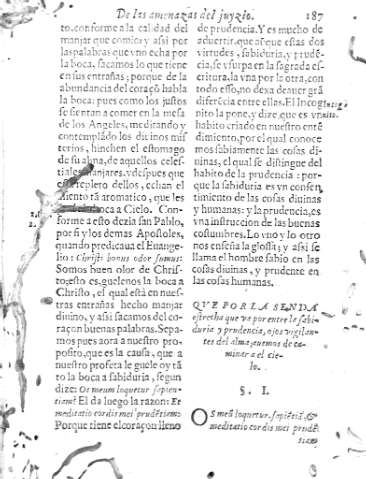 De las amenazas del juyzio. 187
to, conforme a la calidad del
manjar que comio: y assi por
las palabras que vno echa por
la boca, sacamos lo que tiene
en sus entrañas; porque de la
abundancia del coraçõ habla
la boca: pues como los justos
se sientan a comer en la mesa
de los Angeles, meditando y
contemplãdo los diuinos mis
terios, hinchen el estomago
de su alma, de aquellos celes-
tiales manjares. y despues que
este repleto dellos, echan el
aliento tã aromatico, que les
boca a Cielo. Con-
forme a esto dezia san Pablo,
por si y los demas Apostoles,
quando predicaua el Euange-
lio: Christi bonus odor sumus:
Somos buen olor de Chris-
to; esto es, guelenos la boca a
Christo, el qual está en nues-
tras entrañas hecho manjar
diuino, y assi sacamos del co-
raçon buenas palabras. Sepa-
mos pues aora a nuestro pro-
posito, que es la causa, que a
nuestro profeta le guele oy tã
to la boca a sabiduria, segun
dize: Os meum loquetur sapien-
tiam? El da luego la razon: Et
meditatio cordis mei prudẽtiam:
Porque tiene el coraçon lleno
de prudencia. Y es mucho de
aduertir, que aũque estas dos
virtudes, sabiduria, y prudẽ-
cia, se vsurpa en la sagrada es-
critura, la vna por la otra, con
todo esso, no dexa de auer grã
diferẽcia entre ellas. El Incog
nito la pone, y dize, que es vn
habito criado en nuestro entẽ
dimiento, por el qual conoce
mos sabiamente las cosas di-
uinas, el qual se distingue del
habito de la prudencia: por-
que la sabiduria es vn consen
timiento de las cosas diuinas
y humanas: y la prudencia, es
vna instruccion de las buenas
costumbres. Lo vno y lo otro
nos enseña la glossa; y assi se
llama el hombre sabio en las
cosas diuinas, y prudente en
las cosas humanas.
QVE POR LA SENDA
estrecha que va por entre la sabi-
duria y prudencia, ojos vigilan-
tes del alma, auemos de ca-
minar a el cie-
lo.
§. I.
Os meũ loquetur sapiẽtiã, &
meditatio cordis mei prudẽ
tiam